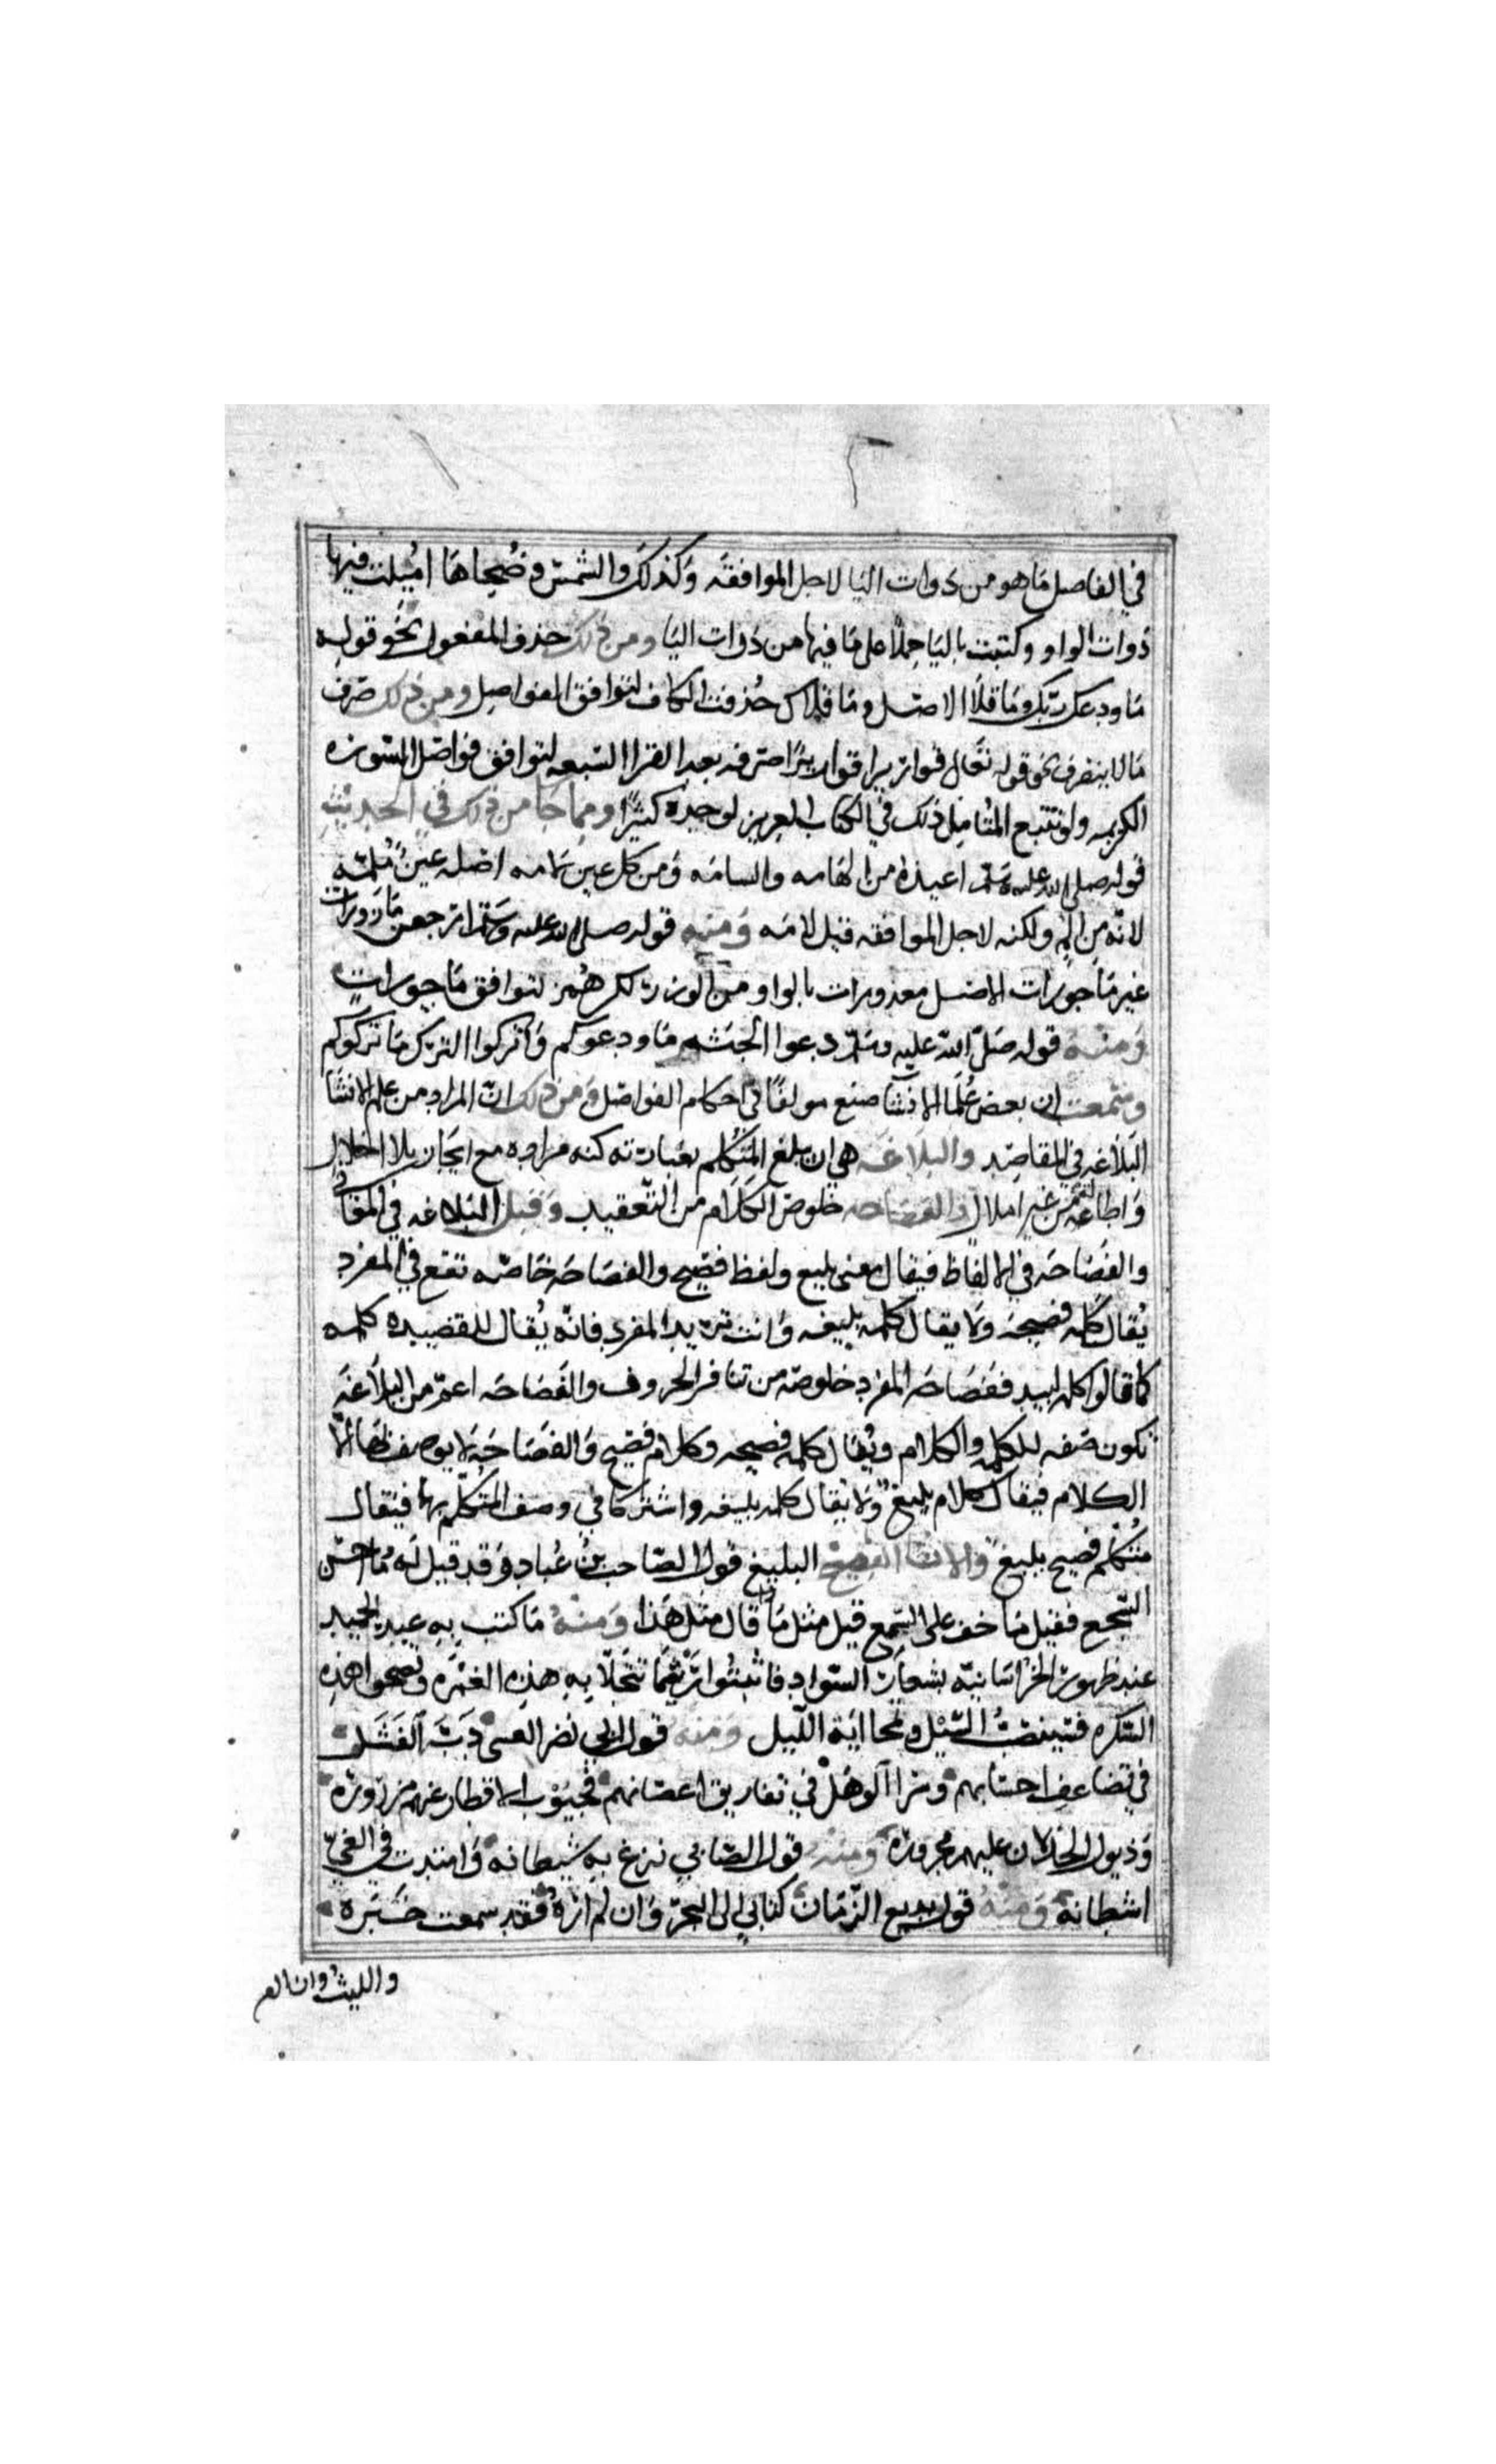 في الفاصل مَا هو من ذوات اليا لاجل الموافقه وَكذلكَ والشمسِ وضُحاهَا اُميلت فيها
ذوات الواو وكتبت باليَا حملًا على مَا فيها من ذَوات اليَا ومن ذلك حذف المفعول نحَو قوله
مَا ودعك ربّكَ ومَا قلا الاصَل ومَا قلاك حُذفت الكاف لتوافق الفواصِل ومن ذلك صَرف
مَا لا ينصرف نحو قوله تعَالى قواريرا قواريرًا صرفه بعض القرا السّبعه لتوافق فواصَل السّوره
الكريمه ولو تتبع المتُامِل ذلك في الكتاب العزيز لوجده كثيرًا وممِا جَا من ذلك في الحديث
قوله صلى الله عليه وسَلم اعيذه من الهَامه والسامَه وَمن كل عين لامه اصَله عينٌ مُلمّه
لانّه من المِ ولكنه لاجل الموافقه قيل لامَه وَمنه قوله صلى الله عليه وسَلم ارجعن مَازورات
غير مَاجورَات الاصَل موزورات بالواو من الوزر لكن هُمز لتوافق مَاجورات
وَمنه قوله صَلى الله عليه وسَلم دعوا الحبَشه مَا ودعوكم وَاتركوا الترك مَا تركوكم
وسَمعت ان بعض عُلَما الانشَا صنع مولفًا في احكام الفواصَل وَمن ذلك انّ المراد من علم الانشَا
البَلاغه في المقاصِد والبلاغَه هي ان يبلغ المتَكلم بعبَارته كنه مراده مع ايجاز بلا اخلال
وَاطاله من غير املال والفصَاحه خلوصَ الكَلَام من التّعقيد وَقيل البَلاغه في المعَاني
والفصَاحَه في الالفاظ فيقال معنى بليغ ولفظ فصَيح والفصَاحَه خَاصّه تقع في المفرد
يُقال كلمه فصيحه وَلا يقال كلمه بليغه وَانت تريد المفرد فانّه يُقال للقصَيده كلمه
كما قالوا كلمه لبيد ففصَاحَه المفرد خلوصَه من تنافر الحروف والفصَاحَه اعمّ من البَلاغَه
تكون صَفه للكلمه والكلام ويُقال كلمه فصيحه وكلام فصَيح وَالفصَاحَه لا يوصف بهَا الّا
الكلام فيقال كلام بليغ وَلا يُقال كلمه بليغه واشتركا في وصف المتكلم بها فيقال
متُكلّم فصيح بليغ وَالانشا الفصَيح البليغ قول الصَاحب بن عُباد وَقد قيل لَه مَا احسَن
السّجع فقيل مَا خف على السّمع قيل مثل مَاذا قال مثِل هَذا وَمنهُ مَا كتب بِهِ عبد الحميد
عند ظهور الخرَاسَانيّه بشعَار السّواد فاثبتُوا رَيثمَا تنجَلي بِهِ هذه الغمَره وتصحوا هذه
السّكره فسَينضبُ السّيْل وتمحا ايَة اللّيل وَمنه قول ابي نصَر العتبى دَبّ الفَشَل
في تضَاعيف احسَابهم وسَرا الوَهَل في تفاريق اعضَائهم فجيُوب الاقطار عنهم مزرُوره
وَذيول الخذلان عليهم مجروره ومنه قول الصّابي نزغ بِه شيطانه وَامتدت في الغيّ
اشطانه وَمنهُ قول بديع الزّمَان كتابي الى البحر وَان لم ارهُ فقد سمعت خَبَره
والليث وان لم